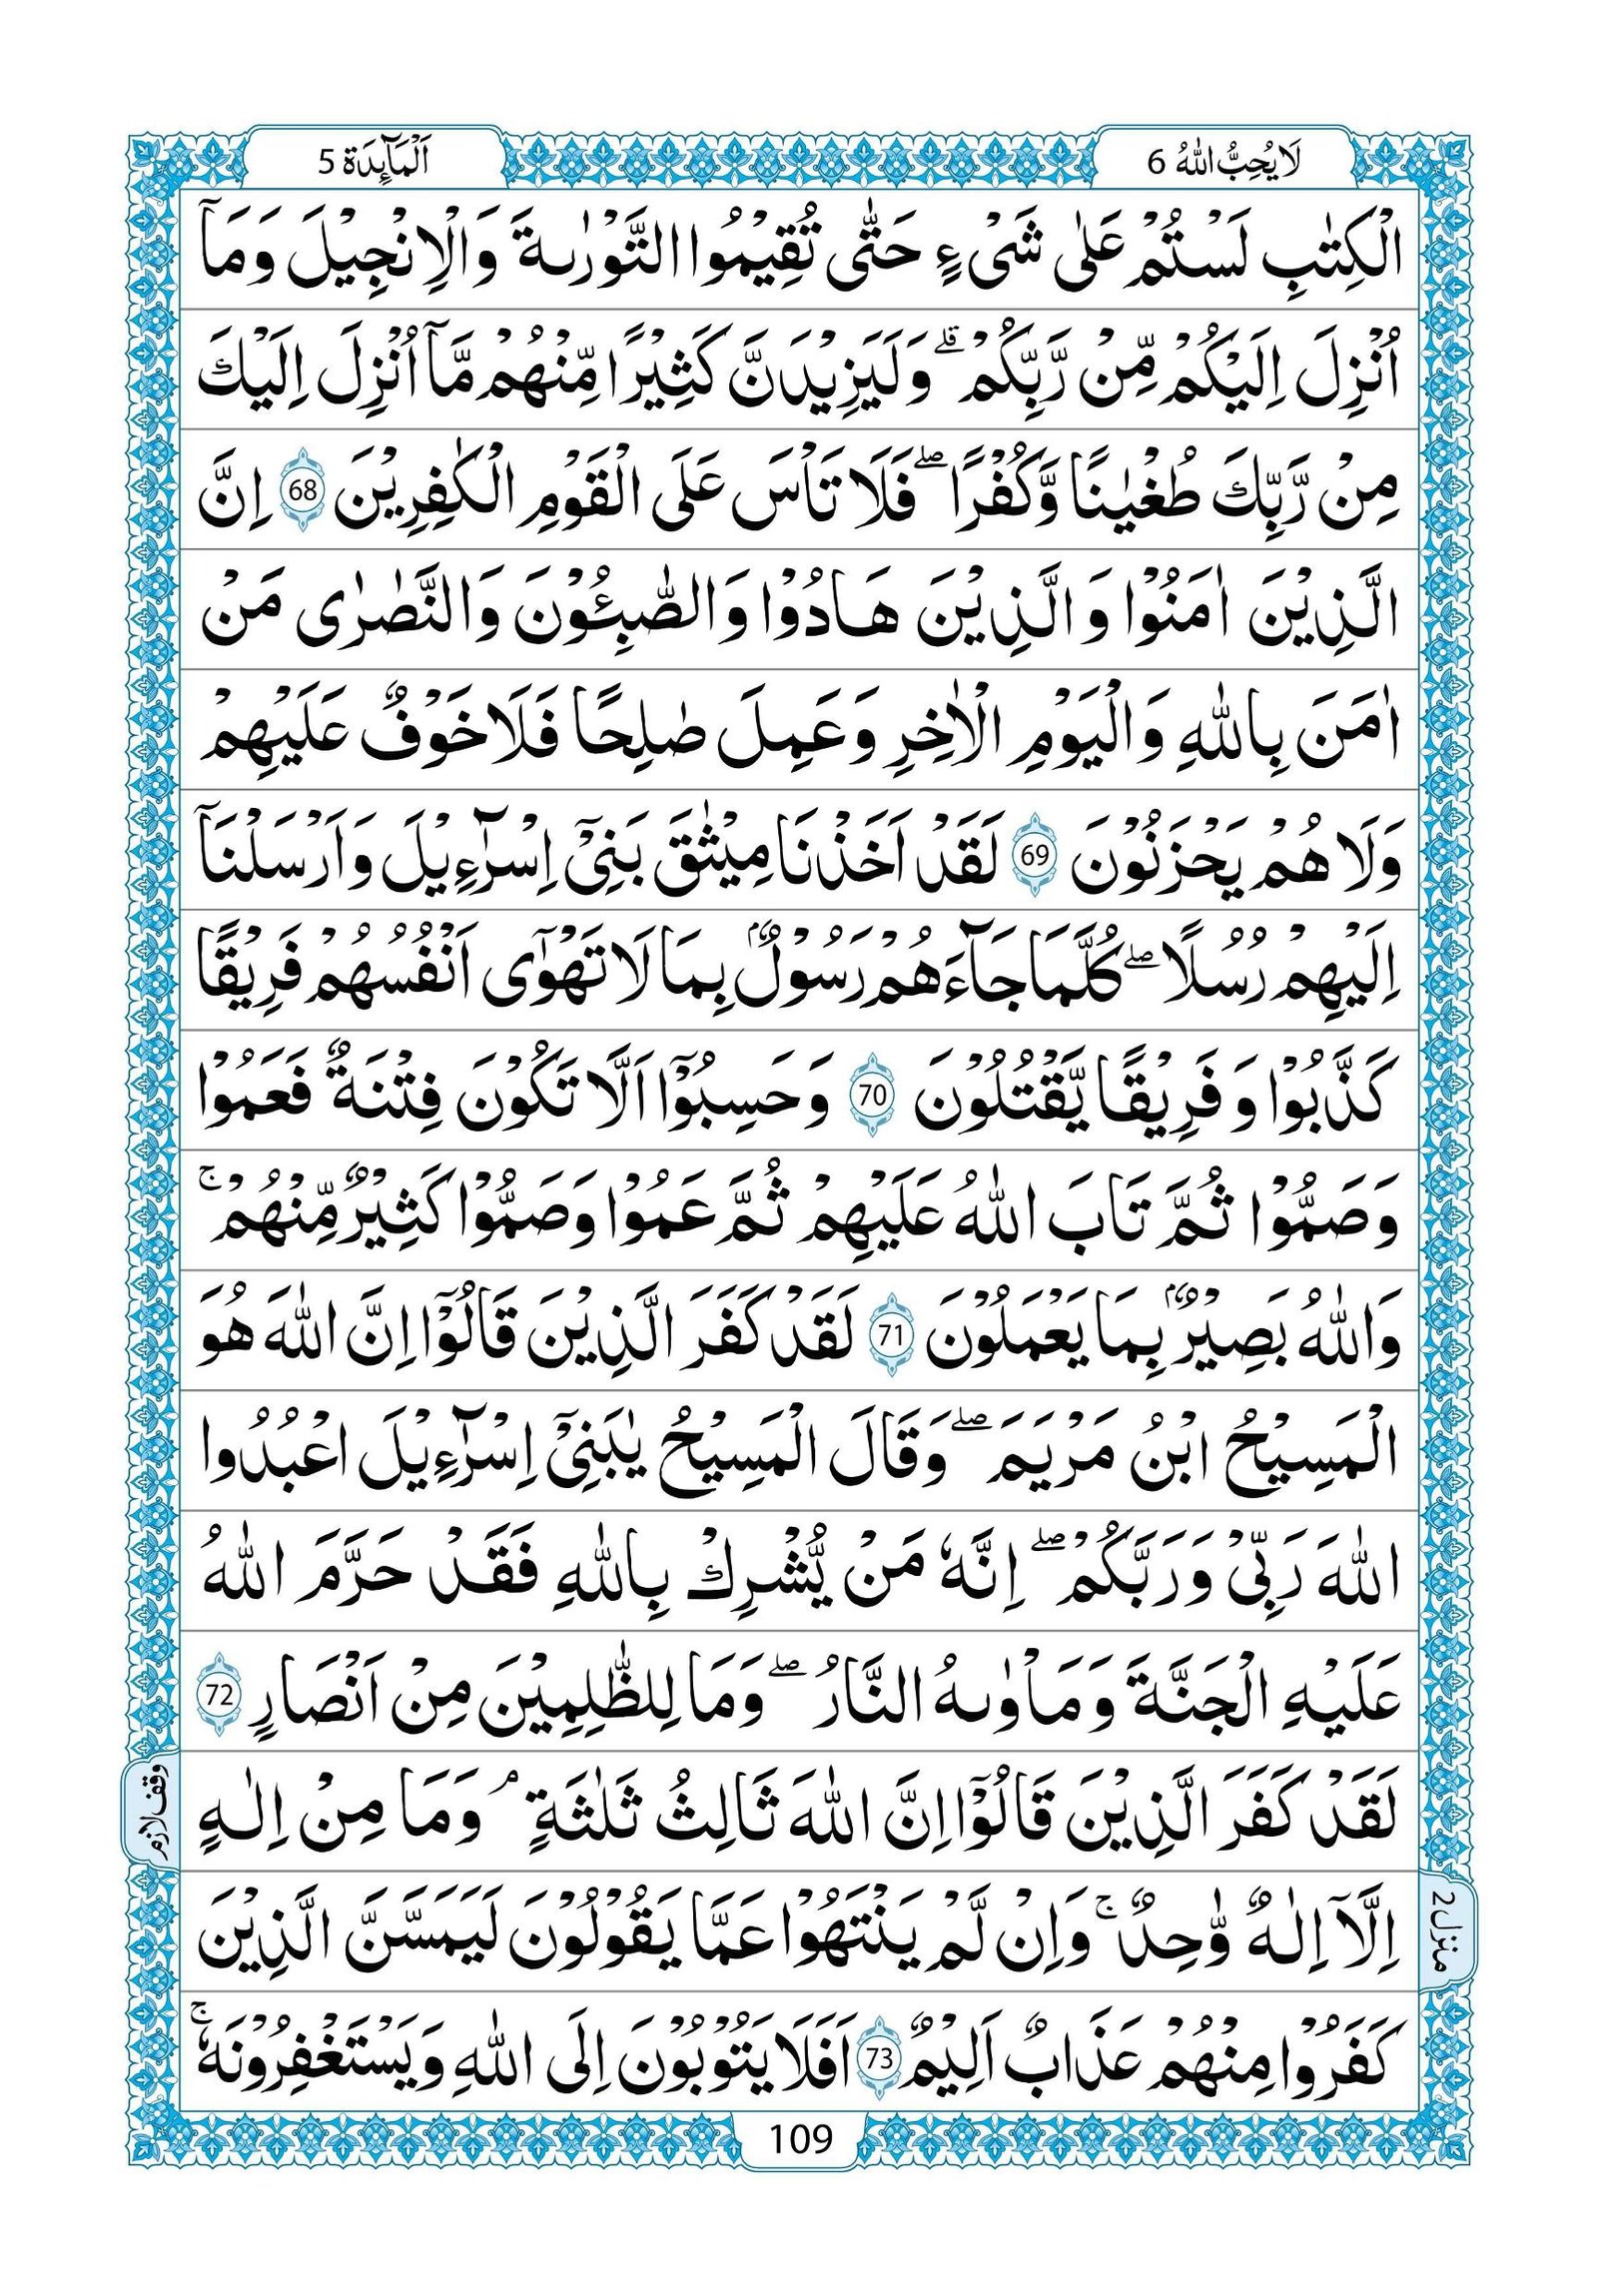 لَا يُحِبُّ اللّٰهُ 6
اَلْمَآئِدَة 5
الْكِتٰبِ لَسْتُمْ عَلٰى شَىْءٍ حَتّٰى تُقِيْمُوا التَّوْرٰىةَ وَالْاِنْجِيْلَ وَمَاۤ
اُنْزِلَ اِلَيْكُمْ مِّنْ رَّبِّكُمْ ؕ وَلَيَزِيْدَنَّ كَثِيْرًا مِّنْهُمْ مَّاۤ اُنْزِلَ اِلَيْكَ
مِنْ رَّبِّكَ طُغْيٰنًا وَّكُفْرًا ۖ فَلَا تَاْسَ عَلَى الْقَوْمِ الْكٰفِرِيْنَ 68 اِنَّ
الَّذِيْنَ اٰمَنُوْا وَالَّذِيْنَ هَادُوْا وَالصّٰبِـُٔوْنَ وَالنَّصٰرٰى مَنْ
اٰمَنَ بِاللّٰهِ وَالْيَوْمِ الْاٰخِرِ وَعَمِلَ صٰلِحًا فَلَا خَوْفٌ عَلَيْهِمْ
وَلَا هُمْ يَحْزَنُوْنَ 69 لَقَدْ اَخَذْنَا مِيْثٰقَ بَنِىْۤ اِسْرَآءِيْلَ وَاَرْسَلْنَاۤ
اِلَيْهِمْ رُسُلًا ۖ كُلَّمَا جَآءَهُمْ رَسُوْلٌۢ بِمَا لَا تَهْوٰٓى اَنْفُسُهُمْ فَرِيْقًا
كَذَّبُوْا وَفَرِيْقًا يَّقْتُلُوْنَ 70 وَحَسِبُوْۤا اَلَّا تَكُوْنَ فِتْنَةٌ فَعَمُوْا
وَصَمُّوْا ثُمَّ تَابَ اللّٰهُ عَلَيْهِمْ ثُمَّ عَمُوْا وَصَمُّوْا كَثِيْرٌ مِّنْهُمْ ۚ
وَاللّٰهُ بَصِيْرٌۢ بِمَا يَعْمَلُوْنَ 71 لَقَدْ كَفَرَ الَّذِيْنَ قَالُوْۤا اِنَّ اللّٰهَ هُوَ
الْمَسِيْحُ ابْنُ مَرْيَمَ ۖ وَقَالَ الْمَسِيْحُ يٰبَنِىْۤ اِسْرَآءِيْلَ اعْبُدُوا
اللّٰهَ رَبِّىْ وَرَبَّكُمْ ۖ اِنَّهٗ مَنْ يُّشْرِكْ بِاللّٰهِ فَقَدْ حَرَّمَ اللّٰهُ
عَلَيْهِ الْجَنَّةَ وَمَاْوٰىهُ النَّارُ ۖ وَمَا لِلظّٰلِمِيْنَ مِنْ اَنْصَارٍ 72
لَقَدْ كَفَرَ الَّذِيْنَ قَالُوْۤا اِنَّ اللّٰهَ ثَالِثُ ثَلٰثَةٍ ۘ وَمَا مِنْ اِلٰهٍ
وقف لازم
اِلَّاۤ اِلٰهٌ وّٰحِدٌ ۚ وَاِنْ لَّمْ يَنْتَهُوْا عَمَّا يَقُوْلُوْنَ لَيَمَسَّنَّ الَّذِيْنَ
منزل 2
كَفَرُوْا مِنْهُمْ عَذَابٌ اَلِيْمٌ 73 اَفَلَا يَتُوْبُوْنَ اِلَى اللّٰهِ وَيَسْتَغْفِرُوْنَهٗ ۚ
109